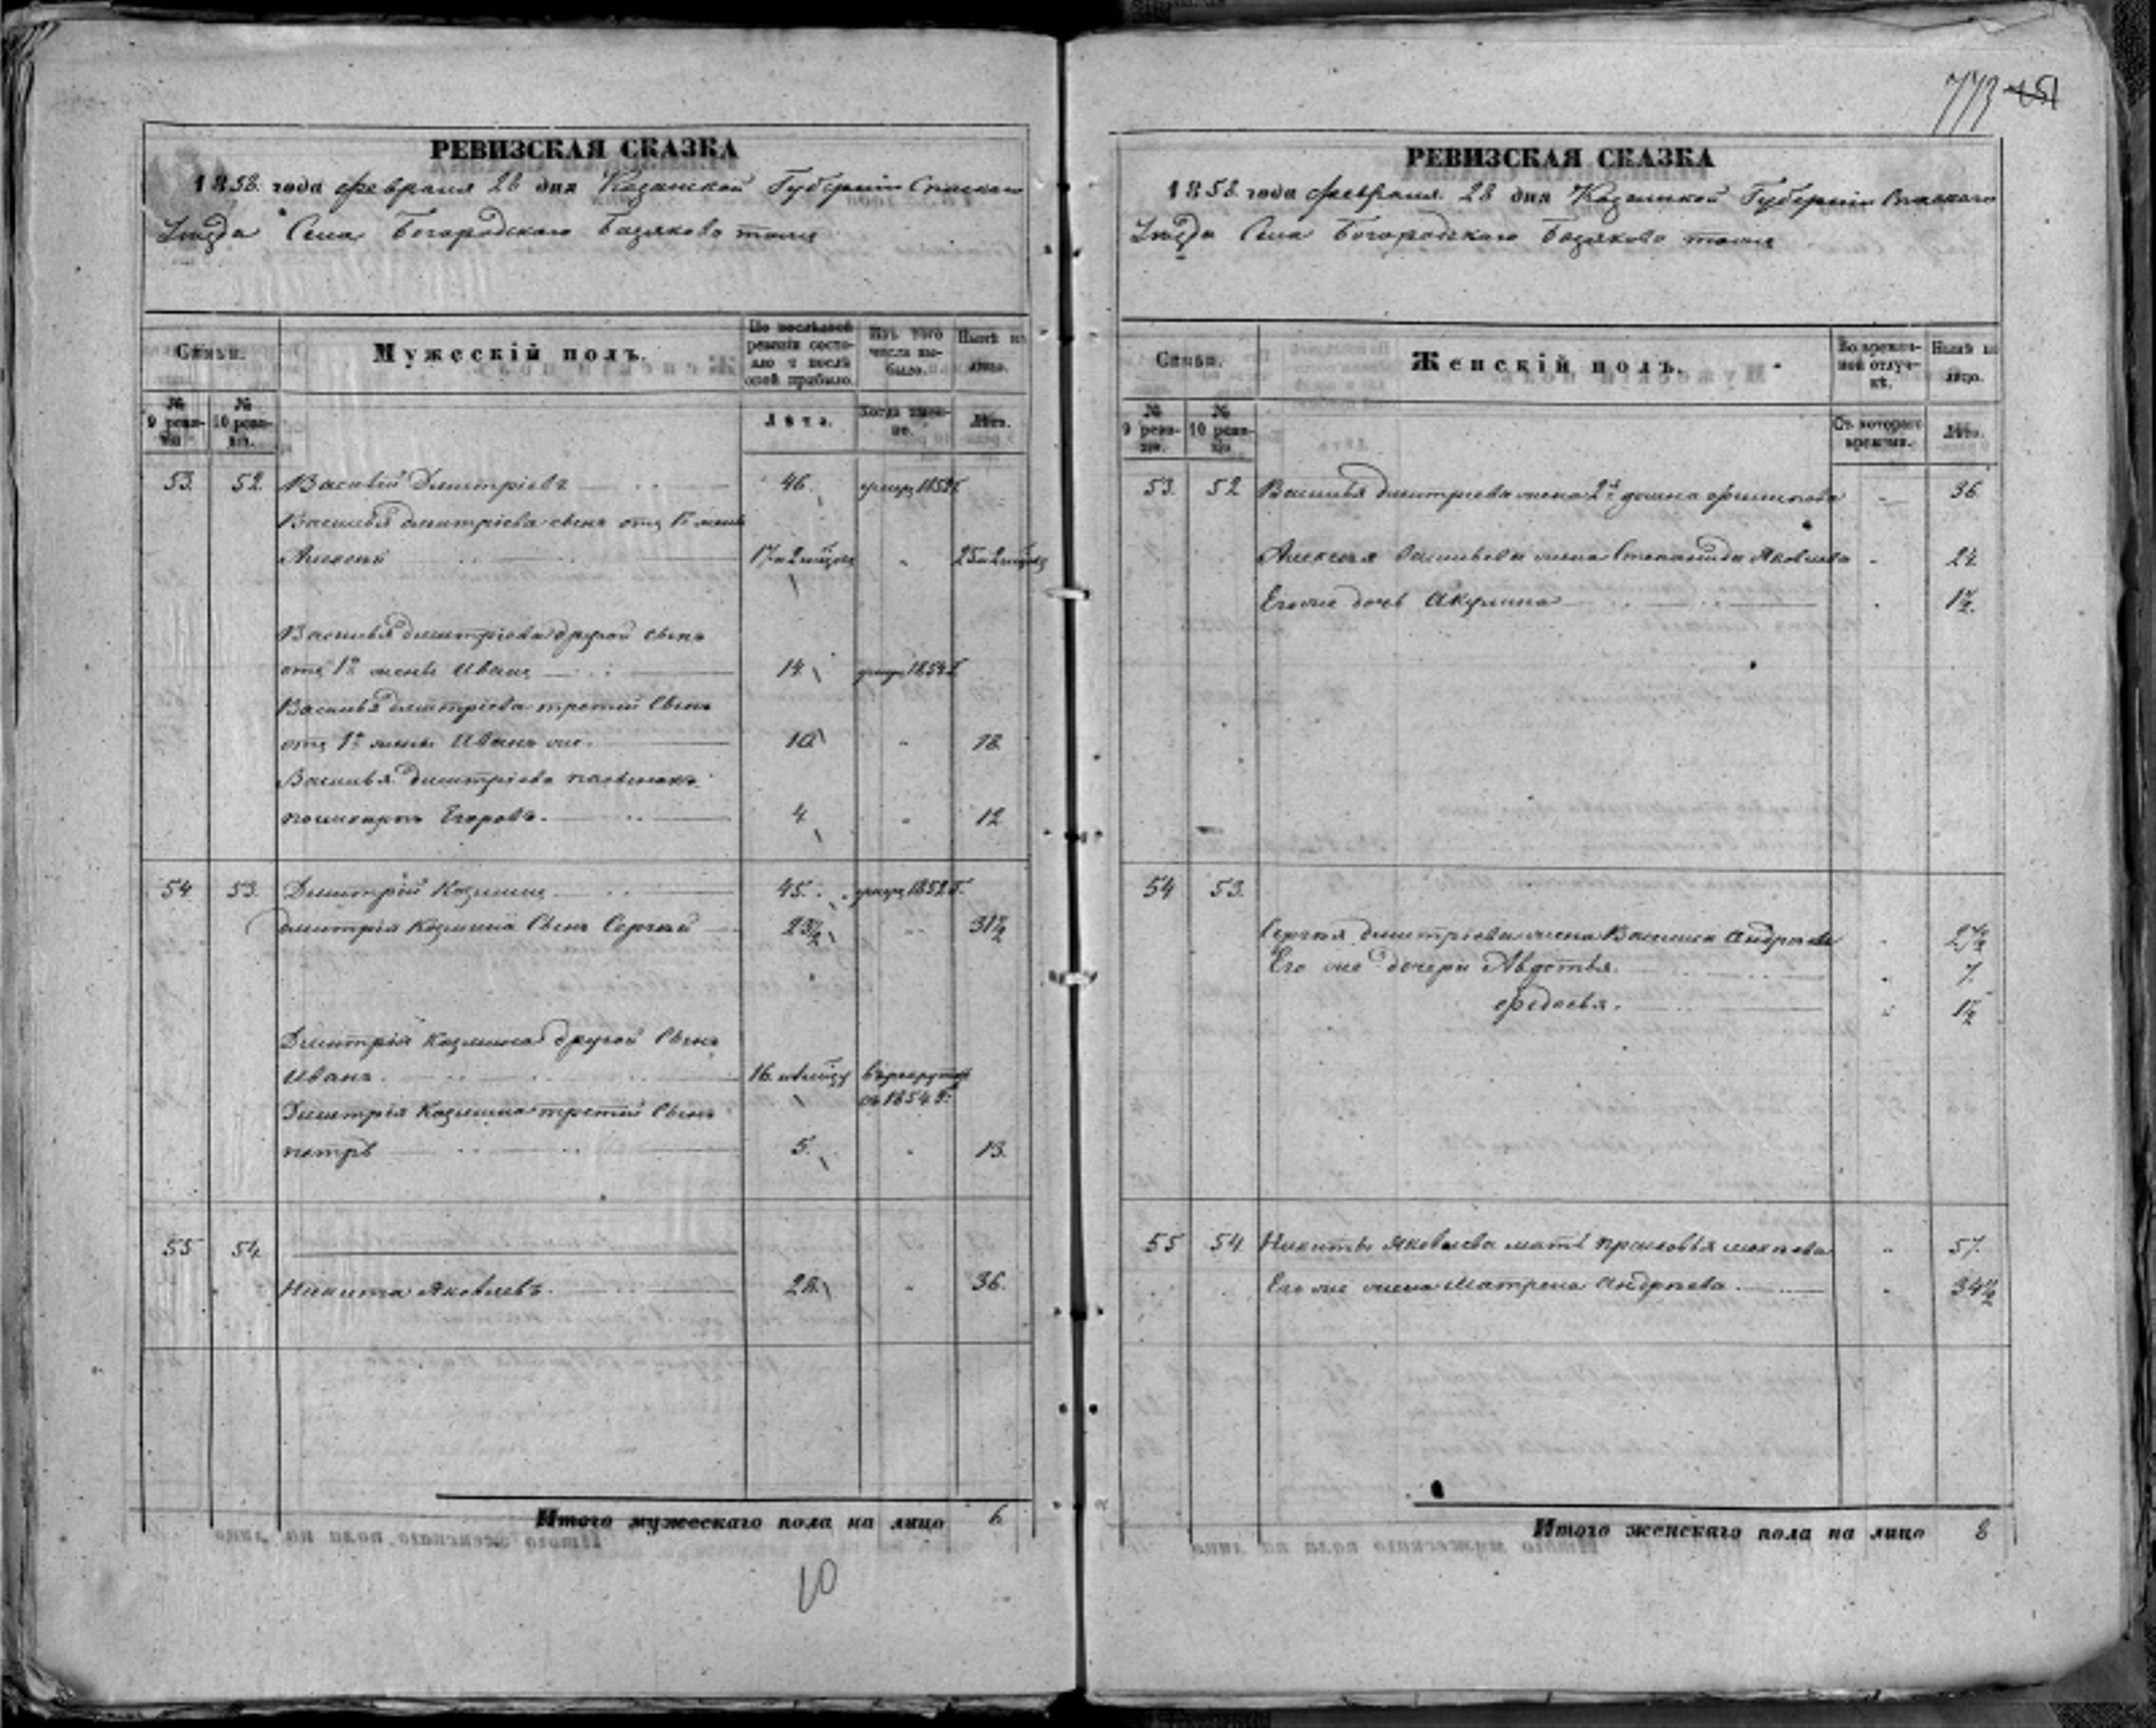 РЕВИЗСКАЯ СКАЗКА
1858 года февраля 28 дня Казанской Губерніи Спаскаго
Уѣзда Села Богородскаго Базяково тожъ
Семьи.
Мужескій полъ.
По послѣдней ревизіи состояло и послѣ оной прибыло.
Изъ того числа выбыло.
Нынѣ на лицо.
№ 9 ревизіи
№ 10 ревизіи.
Лѣта.
Когда именно.
Лѣта.
53. 52. Василей Дмитріевъ 46. умеръ 1852 г.
Василья Дмитріева сынъ отъ 1й жены
Алексей 17 и 2 25 и 2
Василья Дмитріева другой сынъ
отъ 1й жены Иванъ 14 умеръ 1854 г.
Василья Дмитріева третій сынъ
отъ 1й жены Иванъ же. 10 " 18.
Василья Дмитріева
Егоровъ. 4 " 12
54 53. Дмитрій Козминъ 45. умеръ 1852 г.
Дмитрія Козмина Сынъ Сергей 23½ " 31½
Дмитрія Козмина другой Сынъ
Иванъ. 16. въ рекруты
въ 1854 г.
Дмитрія Козмина третій Сынъ
петръ 5. " 13.
55 54.
Никита Яковлевъ. 28 " 36.
Итого мужескаго пола на лицо 6.
10
773 151
РЕВИЗСКАЯ СКАЗКА
1858 года февраля 28 дня Казанской Губерніи Спаскаго
Уѣзда Села Богородскаго Базяково тожъ
Семьи.
Женскій полъ.
Во временной отлучкѣ.
Нынѣ на лицо.
№ 9 ревизіи.
№ 10 ревизіи
Съ котораго времени.
Лѣта.
53. 52 Василья Дмитріева жена 2я " 36
Алексея Васильева жена Степанида Яковлева " 24
Его же дочь Акулина " 1½.
54 53.
Сергея Дмитріева жена Василиса Андреева " 27½
Его же дочери Авдотья. " 7.
федосья. " 1½
55 54 Никиты Яковлева мать прасковья " 57.
Его же жена Матрена Андреева " 34½
Итого женскаго пола на лицо 8